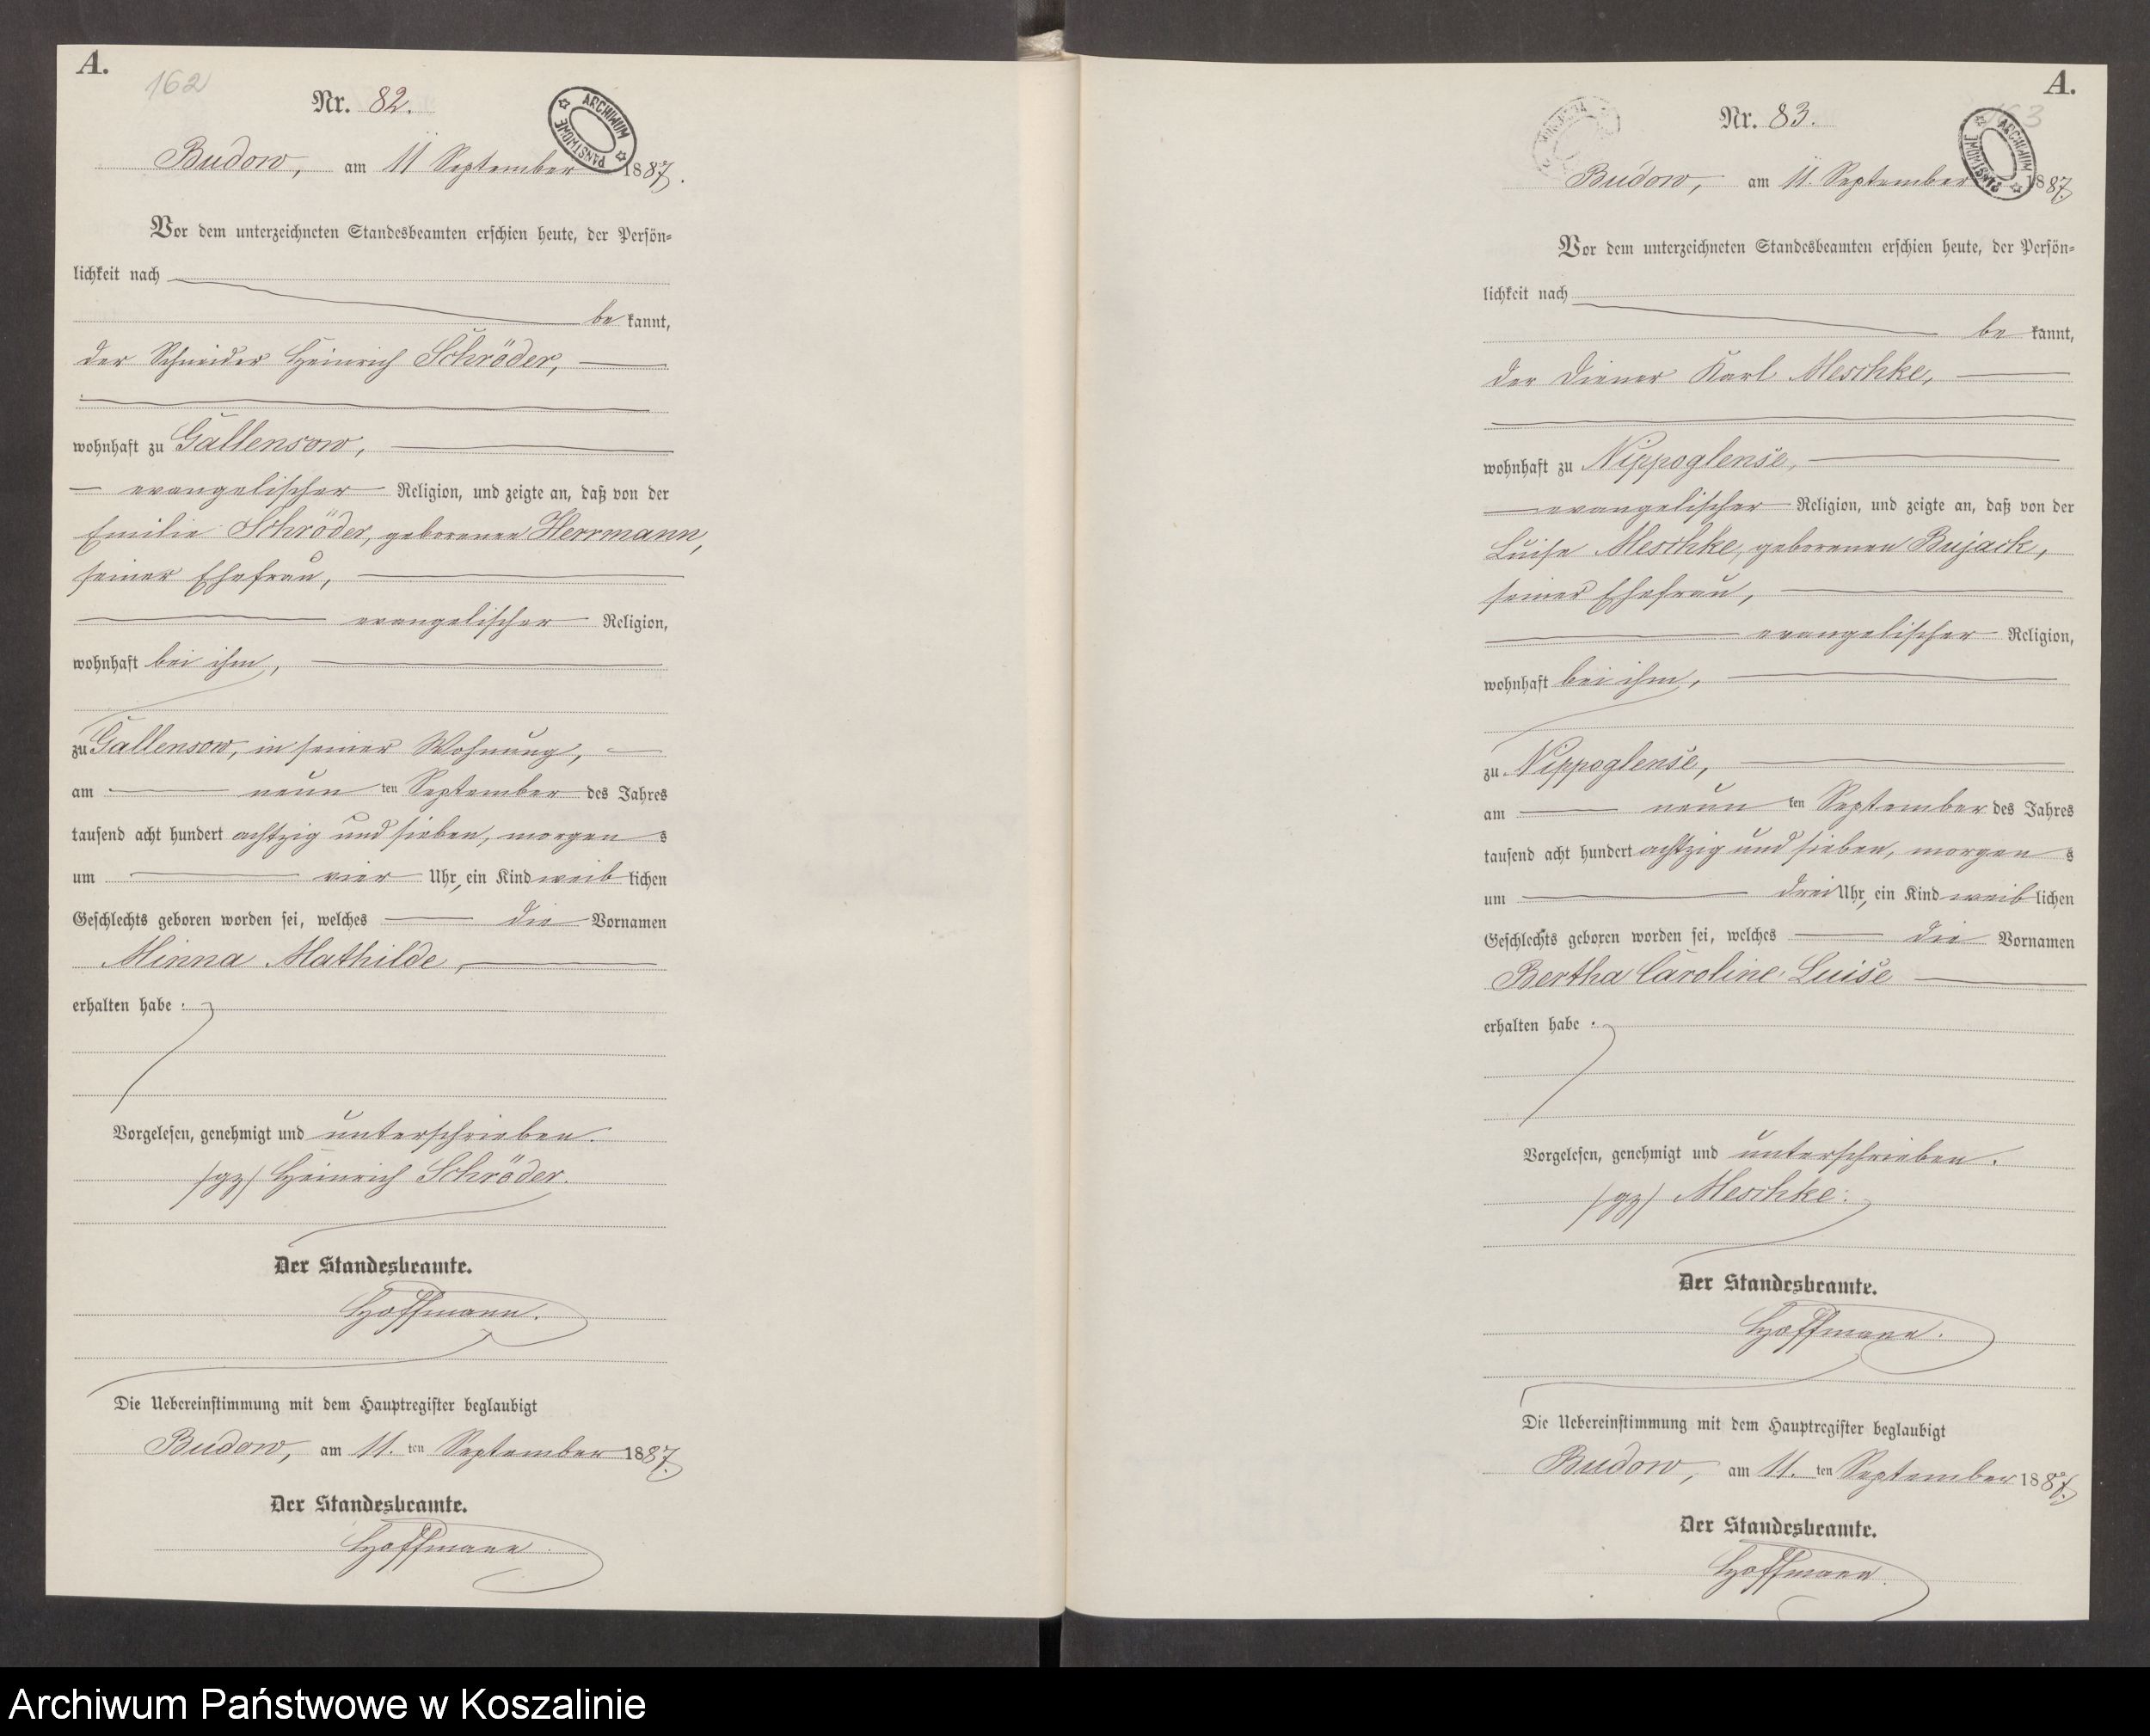 A.
162
Nr. 82.
ARCHIWUM PAŃSTWOWE
Budow, am 11 September 1887.
Vor dem unterzeichneten Standesbeamten erschien heute, der Persön-
lichkeit nach
bekannt,
der Schneider Heinrich Schröder,
wohnhaft zu Gallensow,
evangelischer Religion, und zeigte an, daß von der
Emilie Schröder, geborenen Herrmann,
seiner Ehefrau,
evangelischer Religion,
wohnhaft bei ihm,
zu Gallensow, in seiner Wohnung,
am neun ten September des Jahres
tausend acht hundert achtzig und sieben, morgens
um vier Uhr, ein Kind weiblichen
Geschlechts geboren worden sei, welches die Vornamen
Minna Mathilde,
erhalten habe.
Vorgelesen, genehmigt und unterschrieben.
/gz/ Heinrich Schröder.
Der Standesbeamte.
Hoffmann.
Die Uebereinstimmung mit dem Hauptregister beglaubigt
Budow, am 11. ten September 1887.
Der Standesbeamte.
Hoffmann.
A.
163
Nr. 83.
ARCHIWUM PAŃSTWOWE
Budow, am 11. September 1887.
Vor dem unterzeichneten Standesbeamten erschien heute, der Persön-
lichkeit nach
bekannt,
der Diener Karl Meschke,
wohnhaft zu Nippoglense,
evangelischer Religion, und zeigte an, daß von der
Luise Meschke, geborenen Bujack,
seiner Ehefrau,
evangelischer Religion,
wohnhaft bei ihm,
zu Nippoglense,
am neun ten September des Jahres
tausend acht hundert achtzig und sieben, morgens
um drei Uhr, ein Kind weiblichen
Geschlechts geboren worden sei, welches die Vornamen
Bertha Caroline Luise
erhalten habe.
Vorgelesen, genehmigt und unterschrieben.
/gz/ Meschke.
Der Standesbeamte.
Hoffmann.
Die Uebereinstimmung mit dem Hauptregister beglaubigt
Budow, am 11. ten September 1887.
Der Standesbeamte.
Hoffmann.
Archiwum Państwowe w Koszalinie